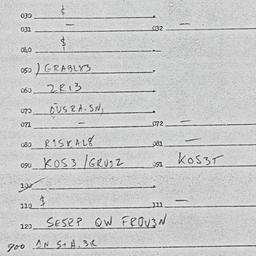 030 $
031 — 032 —
040 $
050 ) GRABLY3
060 2R13
070
071 — 072 —
080 R1SKAL8 081 —
090 KOS3 /GRUS2 091 KOS3T
100
110 $ 111 —
120 SESRP OW FROV3N
900